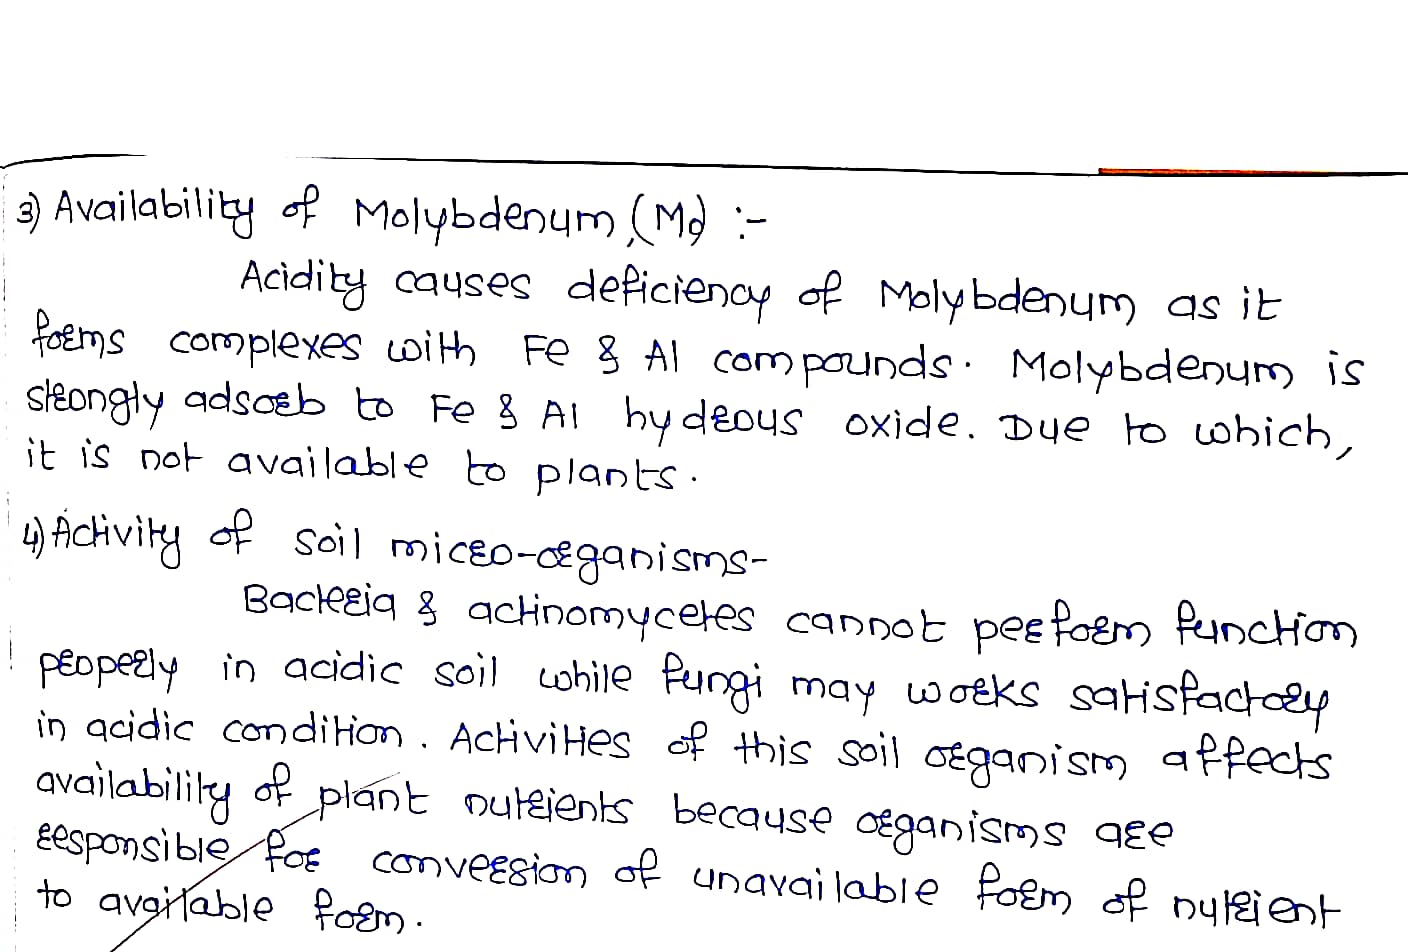 3) Availability of Molybdenum, (Mo) :-
Acidity causes deficiency of Molybdenum as it
forms complexes with Fe & Al compounds. Molybdenum is
strongly adsorb to Fe & Al hydrous oxide. Due to which,
it is not available to plants.
4) Activity of soil micro-organisms-
Bacteria & actinomycetes cannot perform function
properly in acidic soil while fungi may works satisfactory
in acidic condition. Activities of this soil organism affects
availability of plant nutrients because organisms are
responsible for conversion of unavailable form of nutrient
to available form.